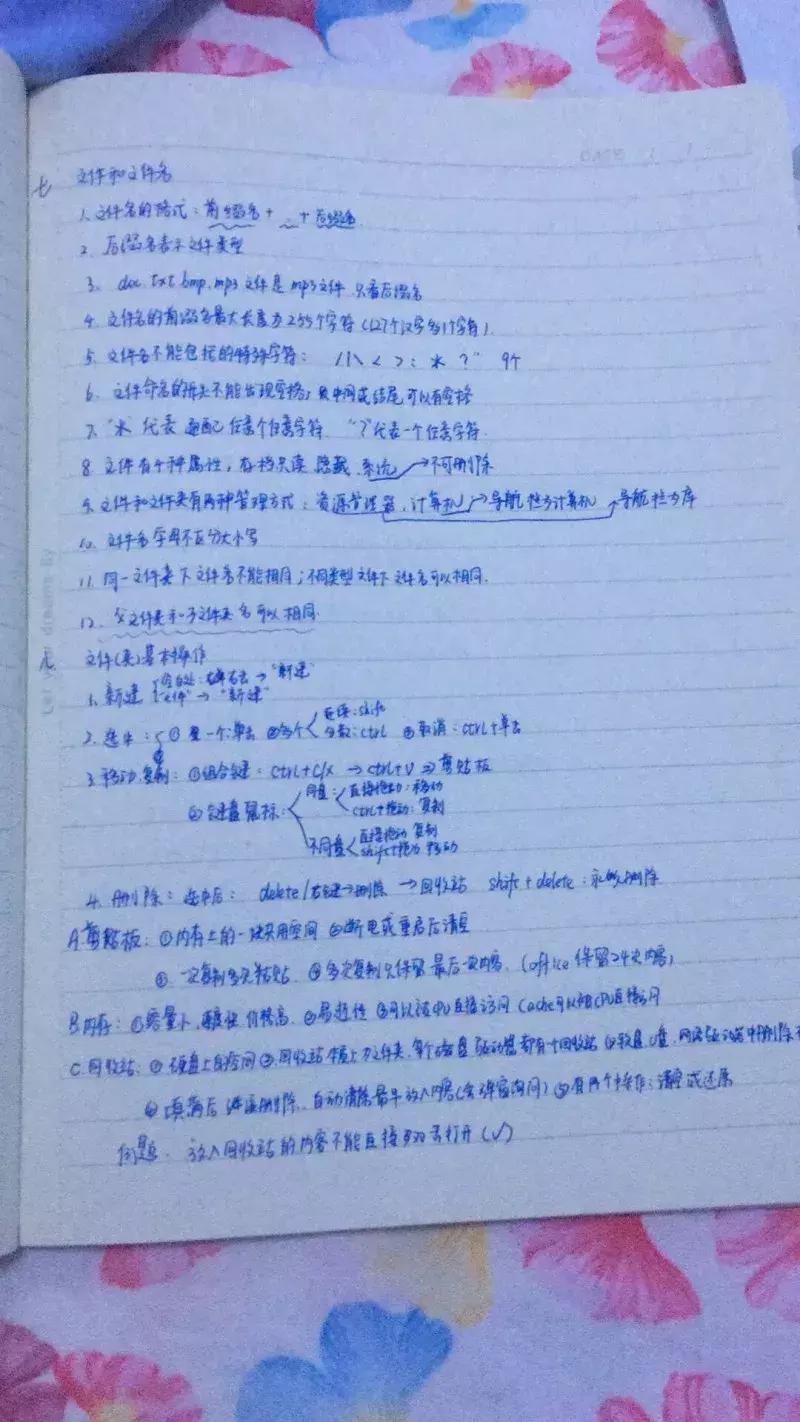 七 文件和文件名
1. 文件名的格式：前缀名+ . +后缀名
2. 后缀名表示文件类型
3. doc.txt.bmp.mp3文件是mp3文件 只看后缀名
4. 文件名的前缀名最大长度为255个字符(127个汉字多1个字符).
5. 文件名不能包括的特殊字符： / | \ < > : * ? " 9个
6. 文件命名的开头不能出现空格，但中间或结尾可以有空格
7. "*"代表 匹配任意个任意字符. "?"代表一个任意字符.
8. 文件有4种属性，存档只读 隐藏 系统→不可删除
9. 文件和文件夹有两种管理方式：资源管理器，计算机→导航栏为计算机 →导航栏为库
10. 文件名字母不区分大小写
11. 同一文件夹下文件名不能相同；不同类型文件下文件名可以相同.
12. 父文件夹和子文件夹名可以相同.
八 文件(夹)基本操作
空白处：右键右击→"新建"
1. 新建 "文件"→"新建"
连续：shift
2. 选中：① 某一个：单击 ②多个 分散：ctrl ③取消：ctrl+单击
3. 移动.复制：①组合键：ctrl+c/x → ctrl+v ⇒ 剪贴板
同盘：直接拖动：移动
②键盘鼠标： ctrl+拖动：复制
直接拖动 复制
不同盘 shift+拖动 移动
4. 删除：选中后： delete/右键→删除 →回收站 shift+delete：永久删除
A.剪贴板：①内存上的一块共用空间 ②断电或重启后清空
③ 一次复制多次粘贴. ④多次复制只保留最后一次内容. (office保留24次内容)
B.内存：①容量小，速度快，价格高. ②易挥性 ③可以被CPU直接访问 Cache可以和CPU直接访问
C.回收站：① 硬盘上的空间 ②回收站本质上为文件夹，每个磁盘驱动器都有个回收站 ③软盘，U盘，网络驱动器中删除
④填满后 继续删除，自动清除最早放入内容(会弹窗询问) ⑤有两个操作：清空或还原
问题： 放入回收站的内容不能直接双击打开 (√)